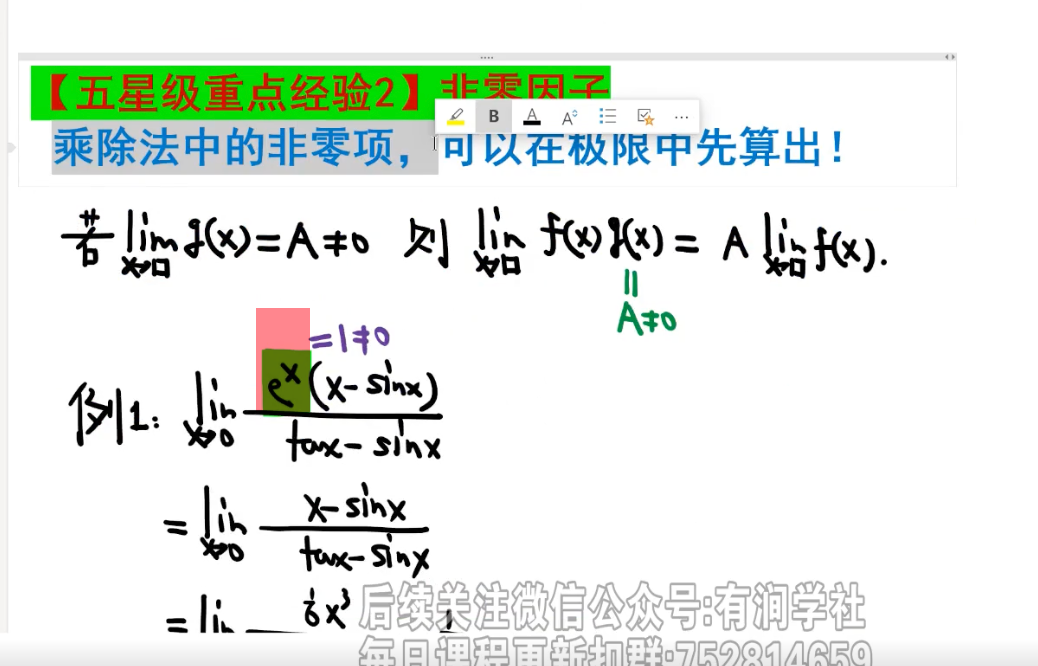 【五星级重点经验2】非零因子
B A A ...
乘除法中的非零项，可以在极限中先算出！
若 lim x→□ g(x)=A≠0 则 lim x→□ f(x)g(x) = A lim x→□ f(x).
= A≠0
=1≠0
例1: lim x→0 e^x(x-sinx)
tax-sinx
= lim x→0 x-sinx
tax-sinx
= lim 1/6 x^3
后续关注微信公众号:有润学社
每日课程更新扣群:752814659